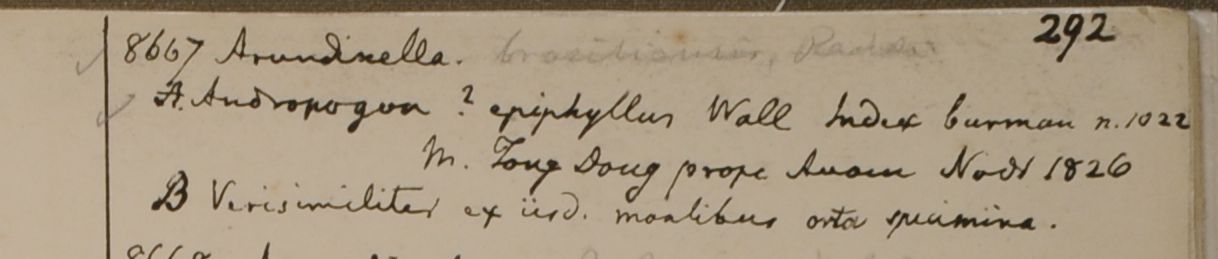 292
8667 Arundinella. brasiliensis, Raddi
A. Andropogon ? epiphyllus Wall Index burman n. 1022
M. Toug Doug prope Avam Novr 1826
B Verisimiliter ex iisd. montibus orta specimina.